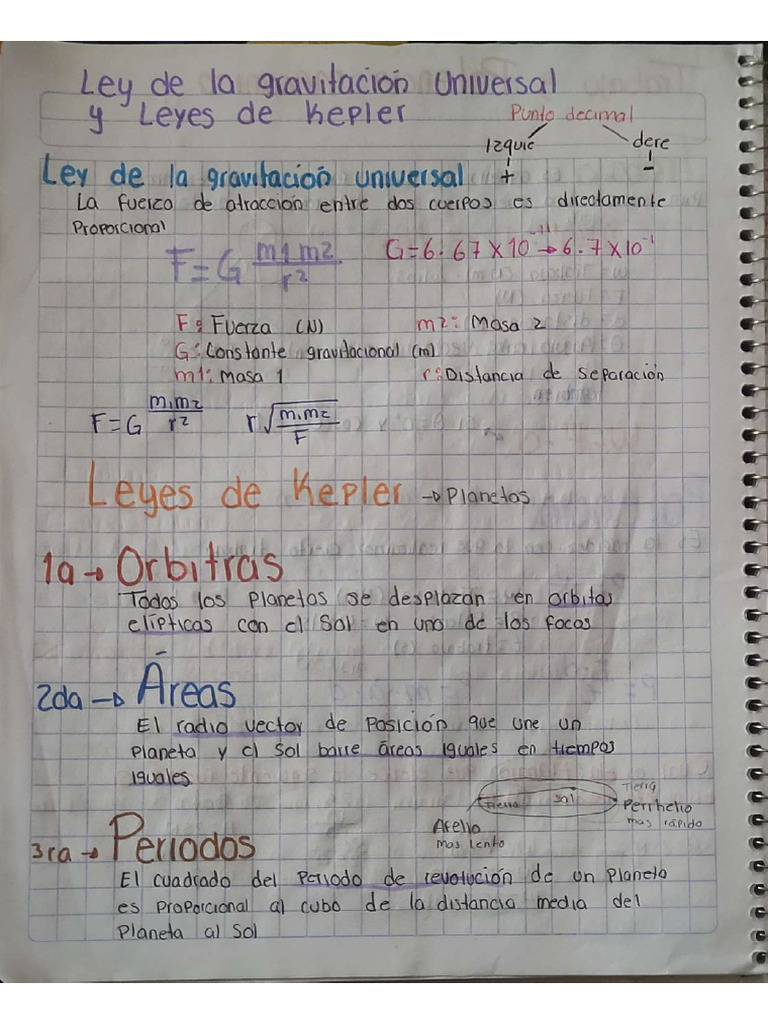 Ley de la gravitación Universal
y Leyes de Kepler
Punto decimal
Izquie dere
+ -
Ley de la gravitación universal
La fuerza de atracción entre dos cuerpos es directamente
Proporcional
F=G m1 m2 / r²
G=6.67 x 10⁻¹¹ → 6.7 x 10⁻¹
F: Fuerza (N) m2: Masa 2
G: Constante gravitacional (m)
m1: Masa 1 r: Distancia de separación
F=G m1m2 / r² r √m1m2 / F
Leyes de Kepler → Planetas
1a → Orbitras
Todos los Planetas se desplazan en orbitas
elípticas con el Sol en uno de los focos
2da → Áreas
El radio vector de Posición que une un
Planeta y el Sol barre áreas iguales en tiempos
iguales
Tierra Sol
Tierra
Perihelio
mas rápido
Afelio
mas lento
3ra → Periodos
El cuadrado del Periodo de revolución de un Planeta
es Proporcional al cubo de la distancia media del
Planeta al Sol